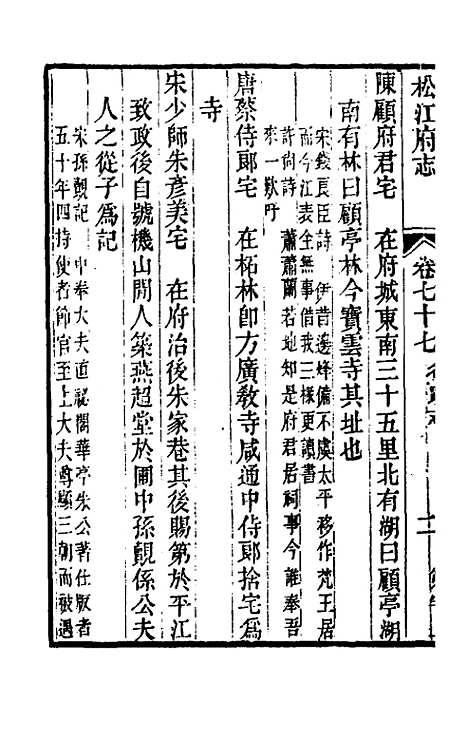 松江府志
卷七十七 名蹟志
陳顧府君宅 在府城東南三十五里北有湖曰顧亭湖
南有林曰顧亭林今寶雲寺其址也
宋錢良臣詩 伊昔邊烽備不虞太平移作梵王居
而今江表全無事借我三楼更讀書
許尚詩 蕭蕭蘭若地知是府君居祠事今誰奉吾
來一歎吁
唐蔡侍郎宅 在柘林卽方廣教寺咸通中侍郎捨宅爲
寺
宋少師朱彥美宅 在府治後朱家巷其後賜第於平江
致政後自號機山閒人築燕超堂於圃中孫覿係公夫
人之從子爲記
宋孫覿記 中奉大夫直祕閣華亭朱公著仕版者
五十年四持使者節官至上大夫尊顯三朝而被遇